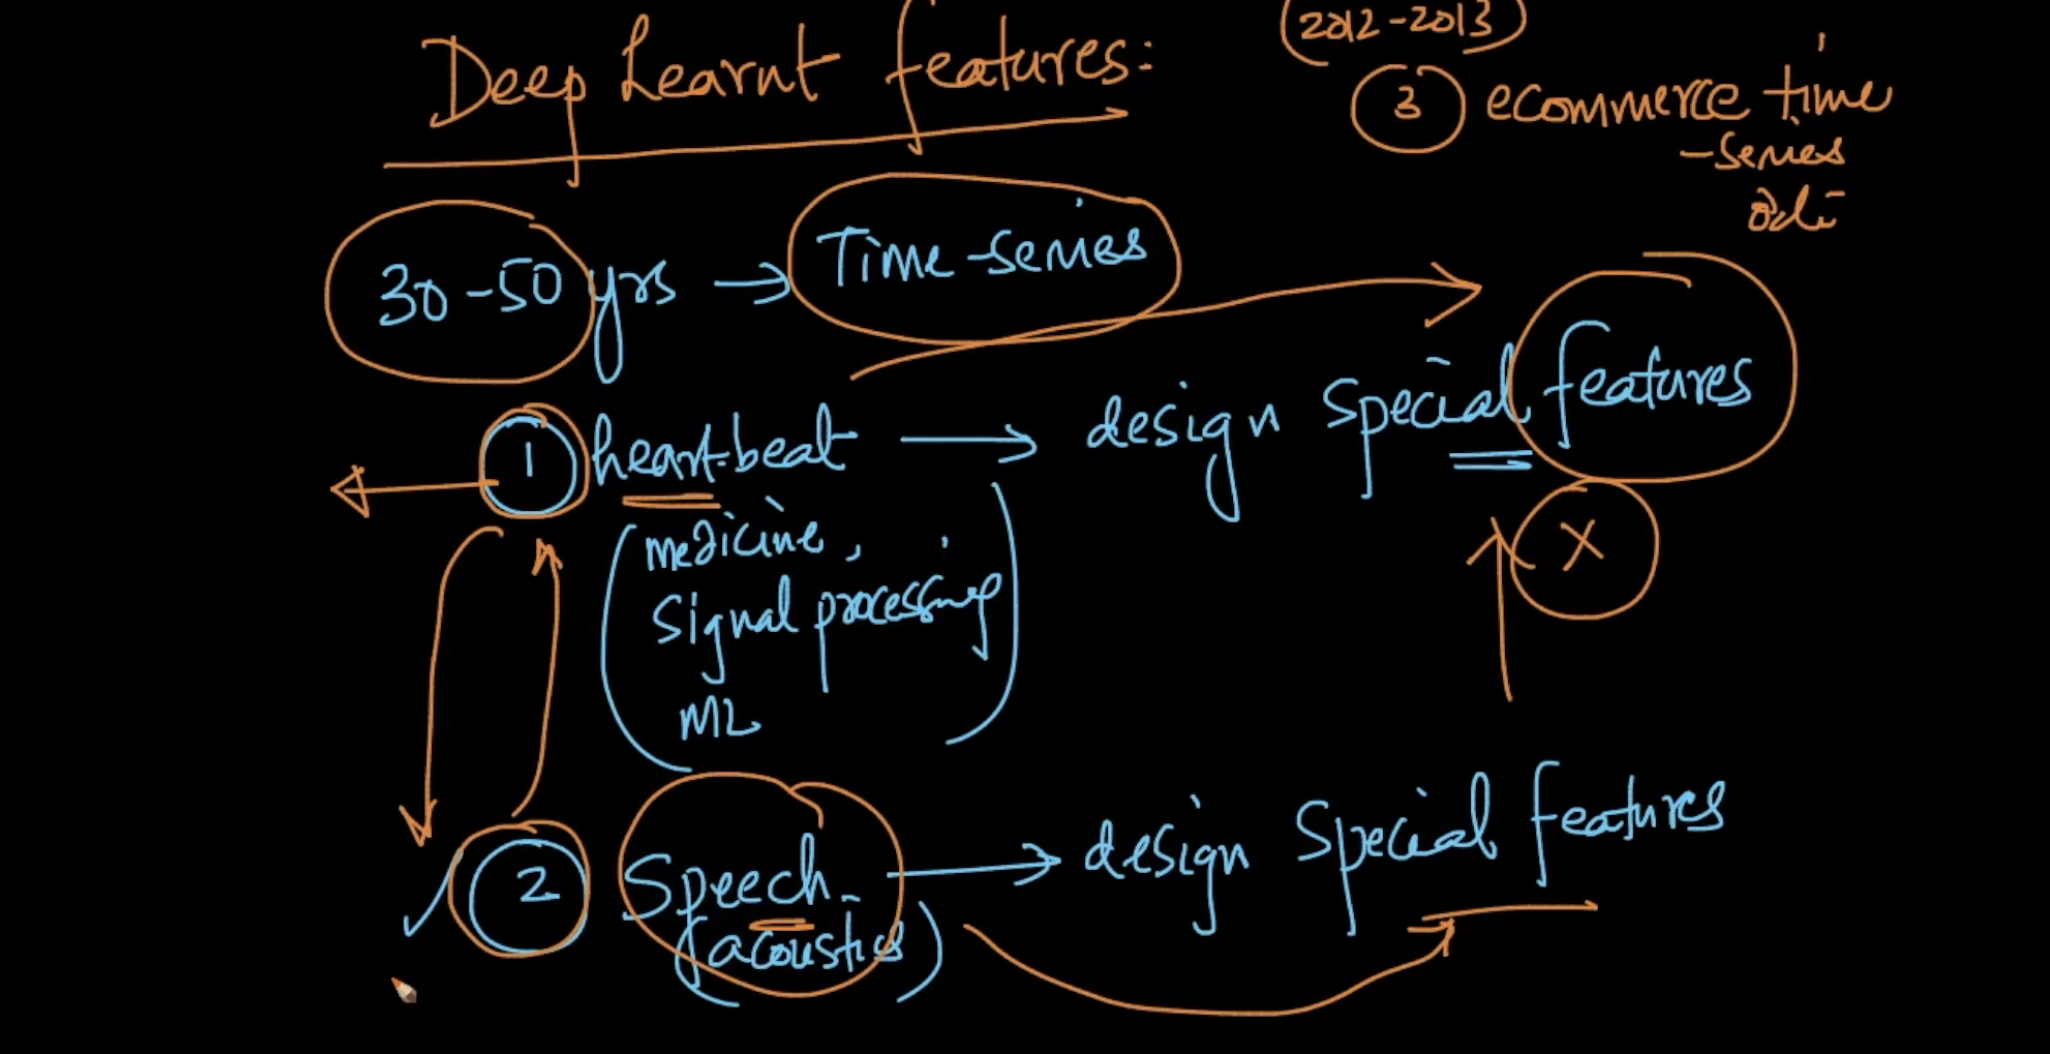 Deep Learnt features:
(2012-2013)
3 ecommerce time
-series
30-50 yrs → Time-series
1 heart-beat → design special features
(medicine,
signal processing
ML)
X
2 Speech → design special features
(acoustics)